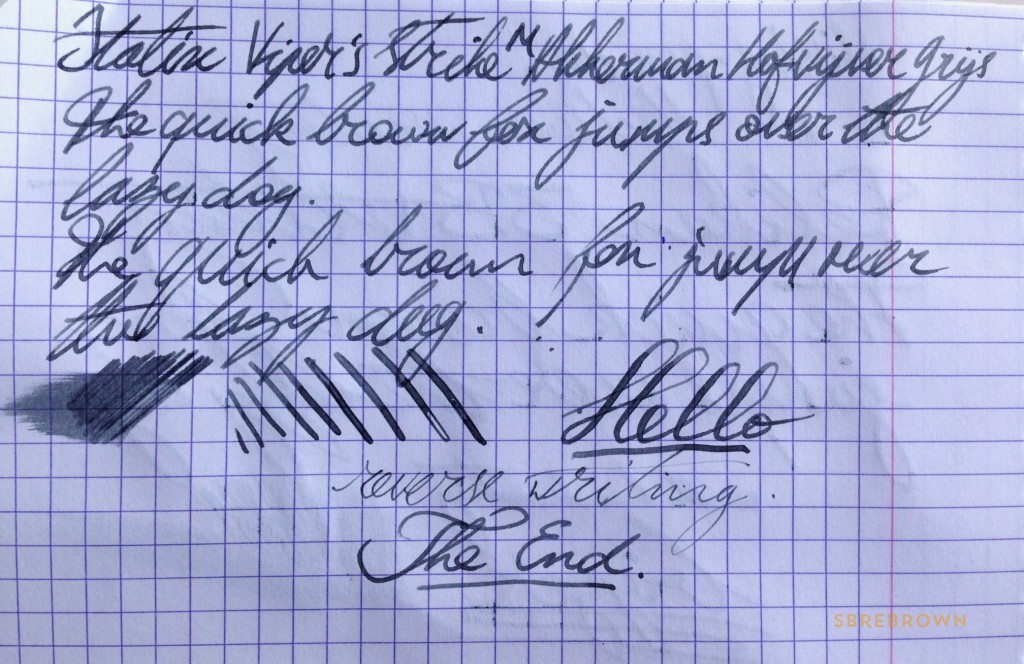 Italix Viper's Strike M Akkerman Hofvijver Grijs
The quick brown fox jumps over the
lazy dog.
The quick brown fox jumps over
the lazy dog.
Hello
reverse writing.
The End.
SBREBROWN